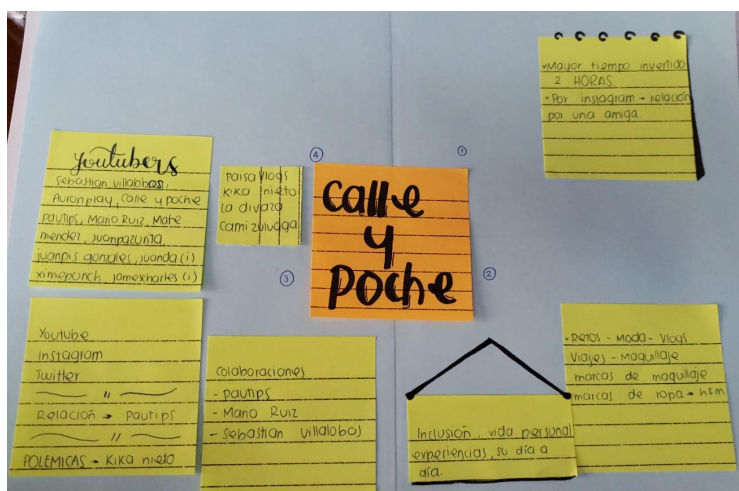 •Mayor tiempo invertido
2 HORAS.
•Por instagram → relación
por una amiga.
①
youtubers
Sebastian Villalobos,
Auronplay, Calle y poche
pautips, Mario Ruiz, Mafe
mendez, juanpazurita
juanpis gonzales, juanda (i)
ximeponch, jamescharles (i)
④
Paisa Vlogs
Kika nieto
La divaza
Cami zuluaga
Calle
y
Poche
③
②
Youtube
Instagram
Twitter
"
Relación → Pautips
"
POLEMICAS → Kika nieto
Colaboraciones
- pautips
- Mario Ruiz
- Sebastian Villalobos
Inclusión, vida personal
experiencias, su día a
día.
• Retos - Moda - Vlogs
Viajes - Maquillaje
marcas de maquillaje
marcas de ropa → h&m